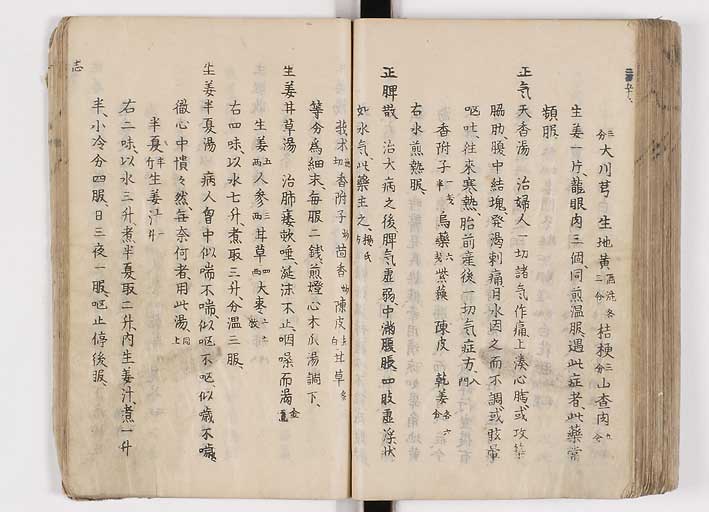 大川芎 生地黄 酒洗各二分 桔梗 三分 山查肉
生姜一片、龍眼肉三個、同煎温服、遇此症者、此藥常
頻服、
正気天香湯 治婦人一切諸気作痛、上湊心胸、或攻築
脇肋、腹中結塊、発渇刺痛、月水因之而不調、或眩暈
嘔吐、往来寒熱、胎前産後一切気症方、
香附子 烏藥 紫蘓 陳皮 乾姜
右水煎熱服、
正脾散 治大病之後、脾気虚弱、中満腹脹、四肢虚浮、状
如水気、此藥主之、
莪朮 香附子 茴香 陳皮 甘草
等分為細末、毎服二銭、煎燈心木瓜湯調下、
生姜甘草湯 治肺痿欬唾、涎沫不止、咽噪而渇
生姜 五両 人參 三両 甘草 四両 大棗
右四味、以水七升、煮取三升、分温三服、
生姜半夏湯 病人胷中似喘不喘、似嘔不嘔、似噦不噦、
徹心中憒々然、毎奈何者、用此湯、
半夏 生姜汁
右二味、以水三升、煮半夏取二升、内生姜汁、煮一升
半、小冷分四服、日三夜一服、嘔止停後服、
志